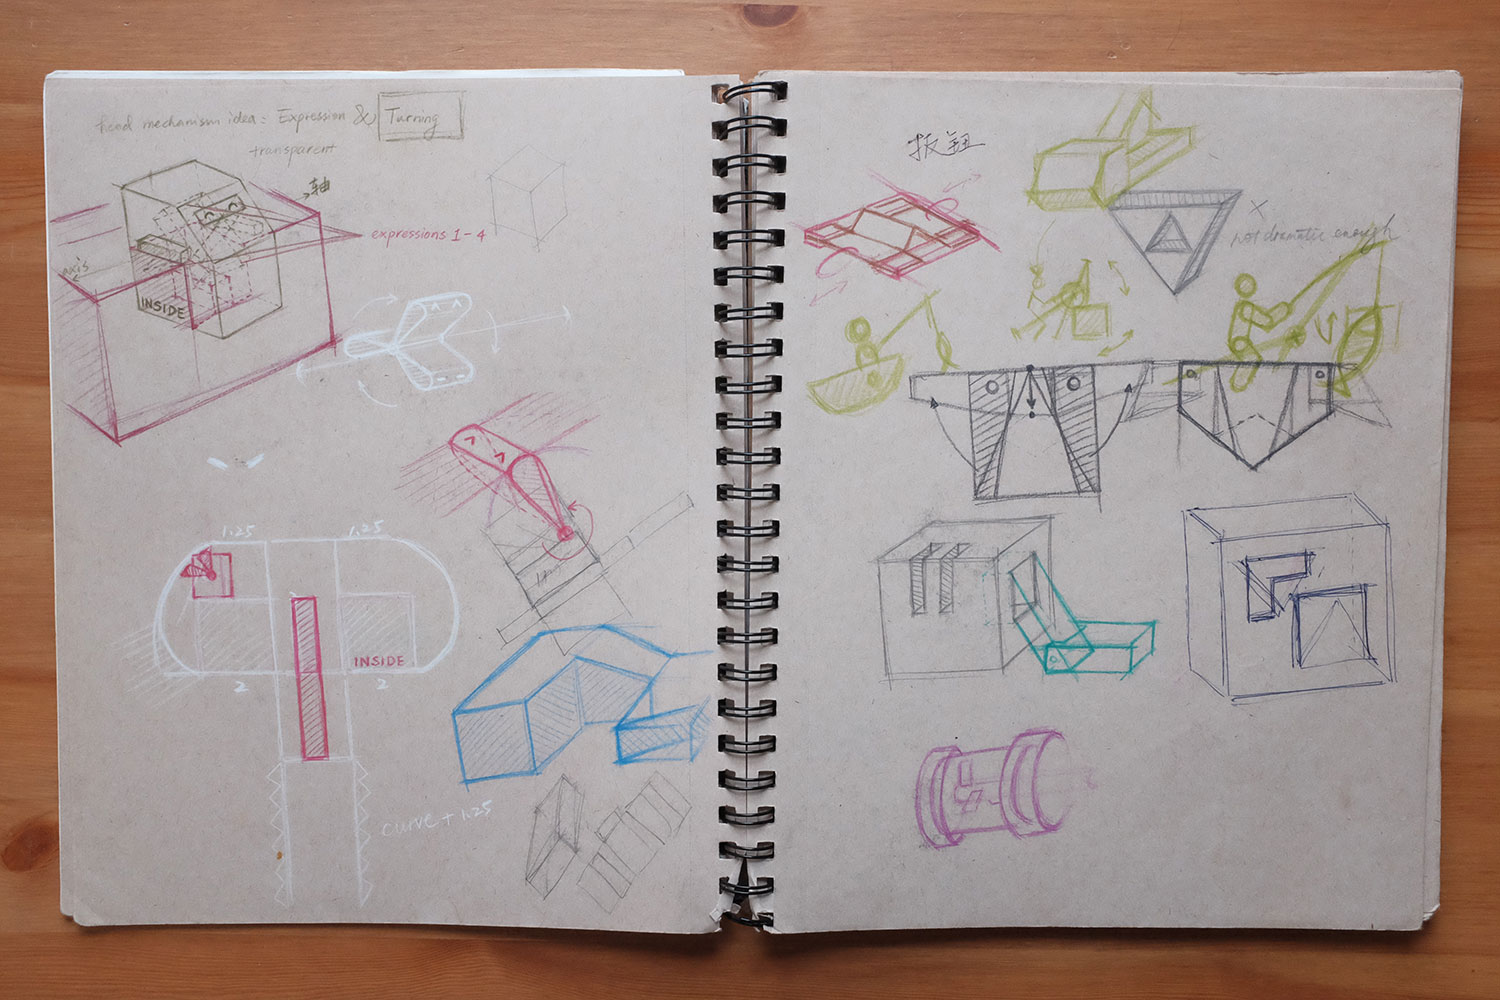 head mechanism idea: Expression & Turning
transparent
轴
expressions 1-4
axis
INSIDE
1.25
1.25
INSIDE
2
2
curve + 1.25
扳钮
not dramatic enough